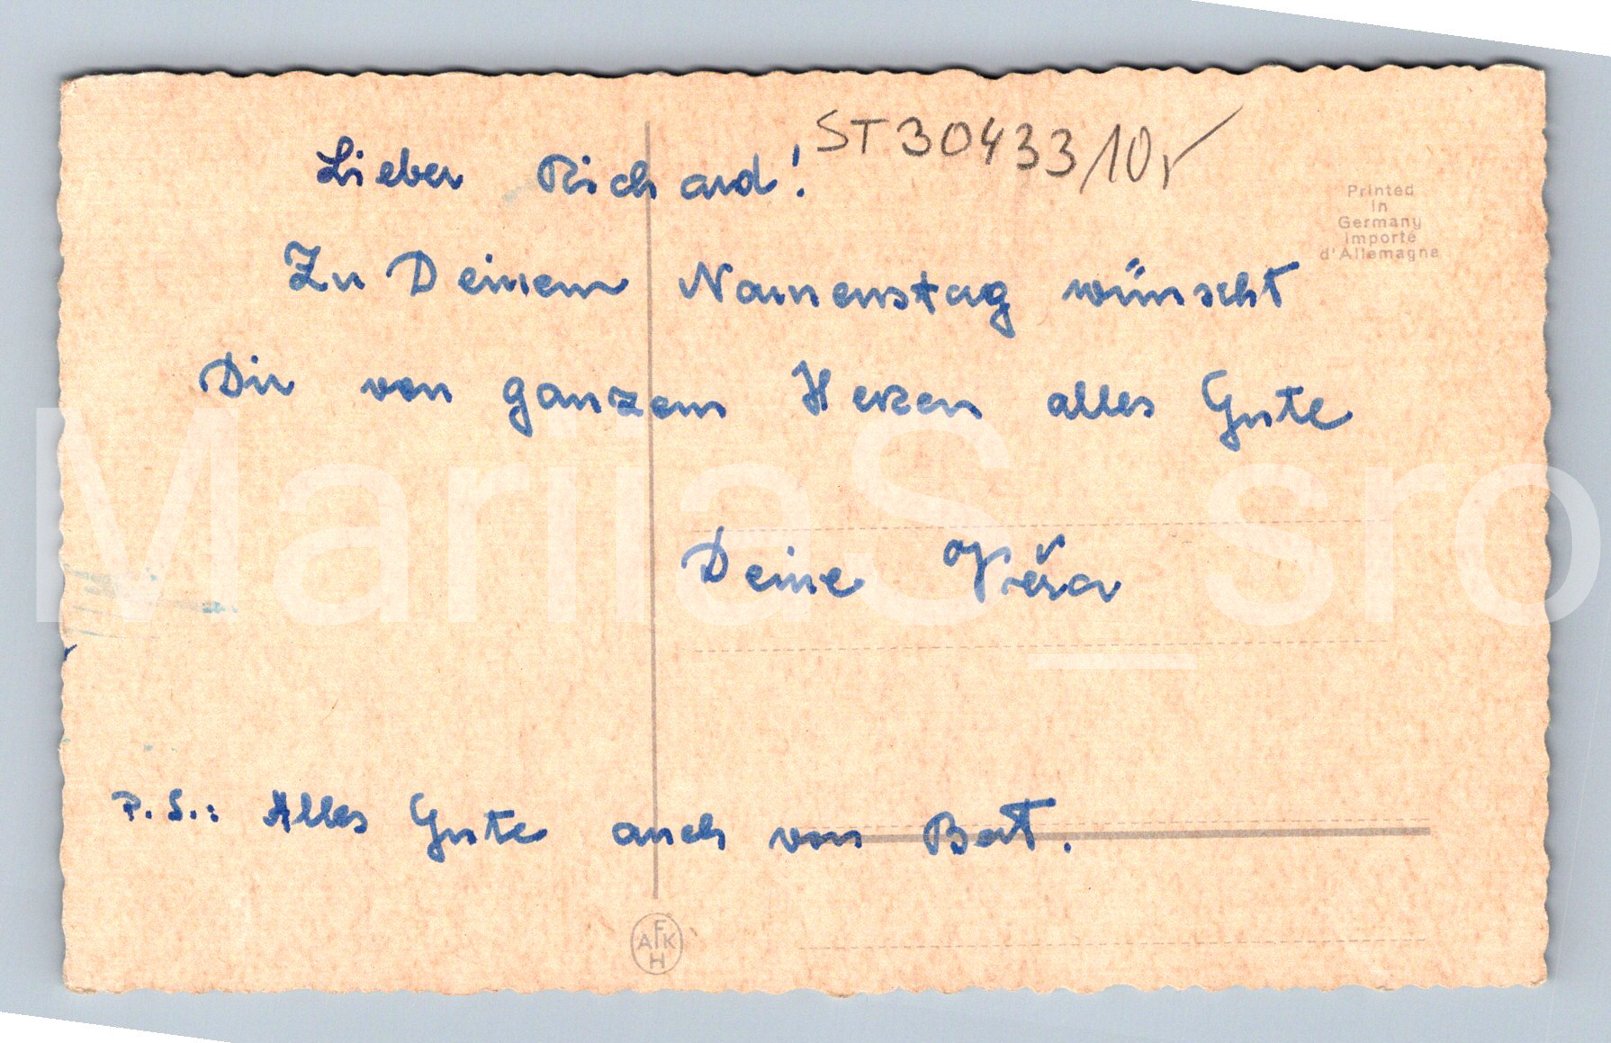 ST30433/10r
Lieber Richard!
Printed
in
Germany
Importé
d'Allemagne
Zu Deinem Namenstag wünscht
Dir von ganzem Herzen alles Gute
MariiaS_sro
Deine Věra
P.S.: Alles Gute auch von Bert.
AFKH